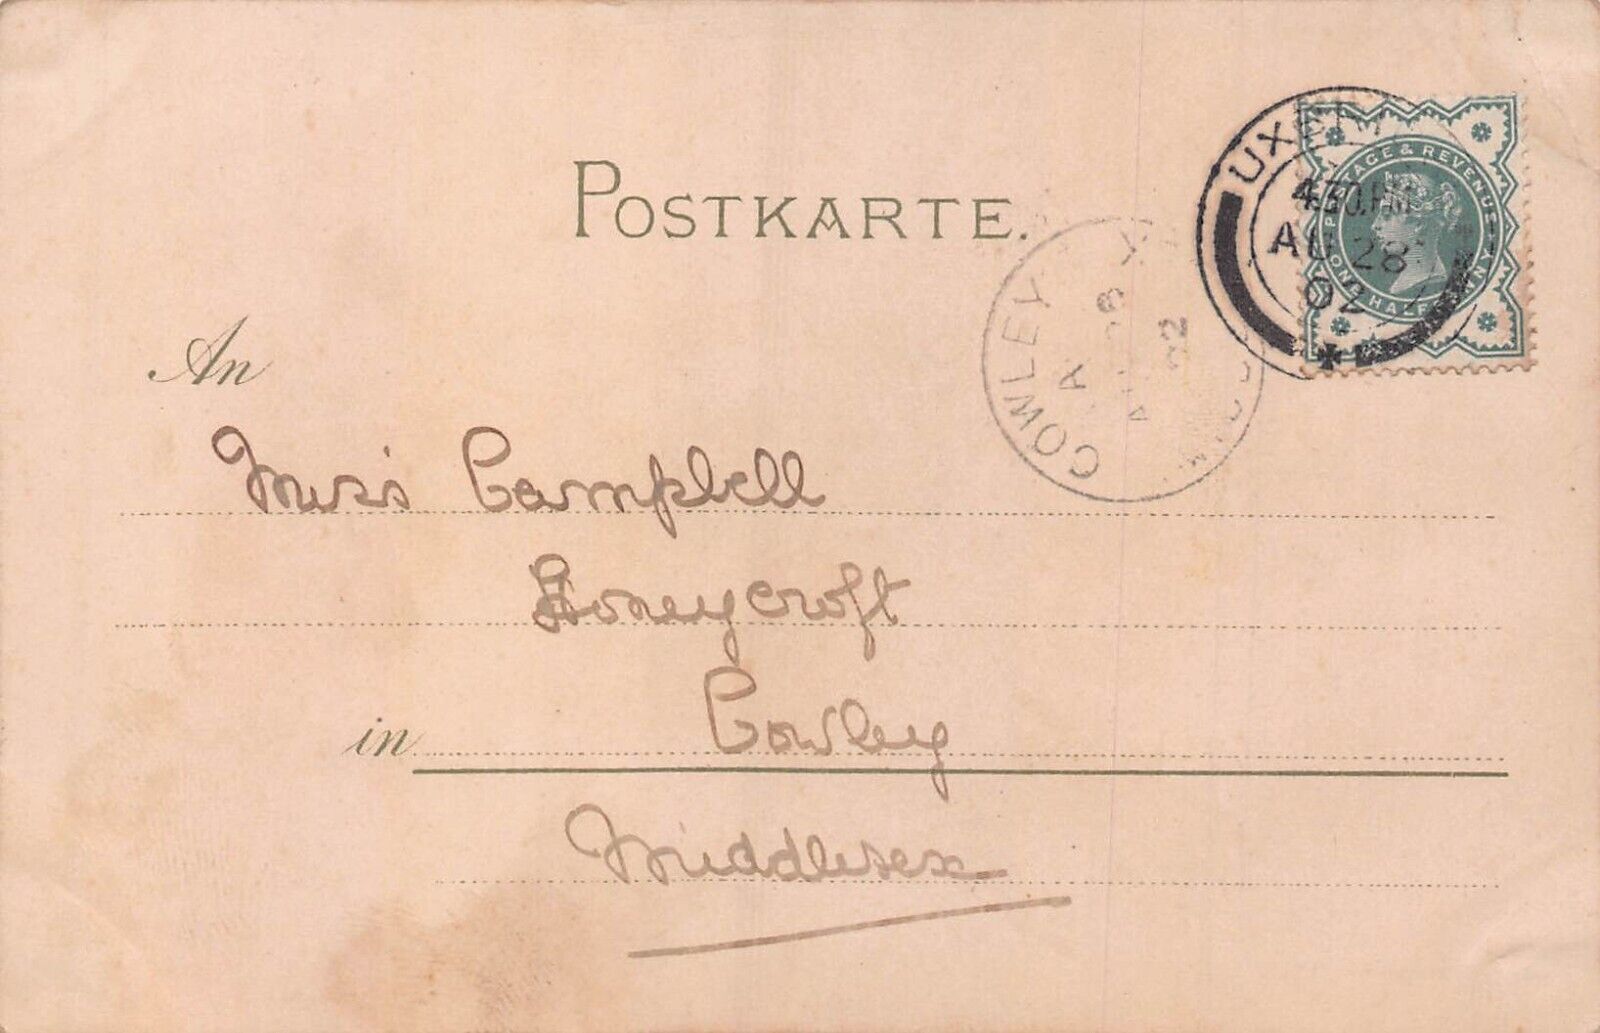 POSTKARTE.
POSTAGE & REVENUE
ONE HALFPENNY
4.30.PM
AU 28
02
COWLEY
A
02
An
Miss Campbell
Honeycroft
in Cowley
Middlesex